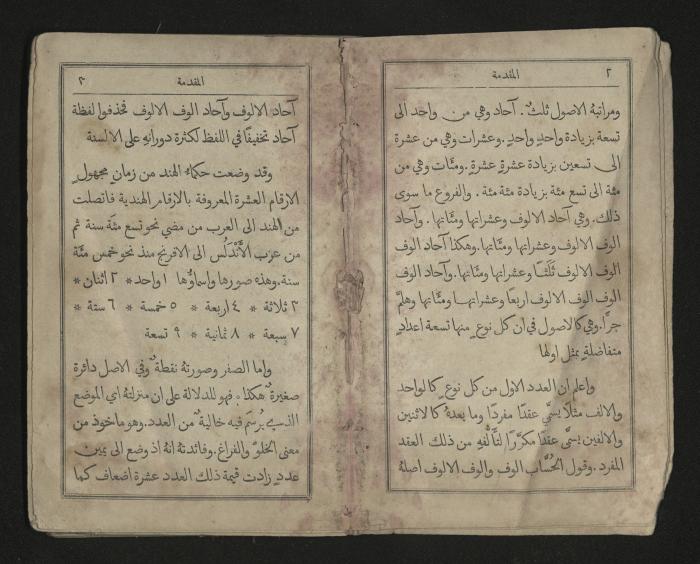 ٢
المقدمة
ومراتبهُ الاصول ثلثٌ. آحاد وهي من واحد الى
تسعة بزيادة واحدٍ واحدٍ. وعشرات وهي من عشرة
الى تسعين بزيادة عشرةٍ عشرةٍ. ومئَات وهي من
مئة الى تسع مئة بزيادة مئة مئة. والفروع ما سوى
ذلك. وهي آحاد الالوف وعشراتها ومئَاتها. وآحاد
الوف الالوف وعشراتها ومئَاتها. وهكذا آحاد الوف
الوف الالوف ثَلَثًا وعشراتها ومئَاتها. وآحاد الوف
الوف الوف الالوف اربعًا وعشراتهـا ومئَاتها وهلمَّ
جرًّا. وهي كالاصول في ان كل نوع منها تسعة اعدادٍ
متفاضلةٍ بمثل اولها
واعلم ان العدد الاول من كل نوعٍ كالواحد
والالف مثلًا يسمَّى عقدًا مفردًا وما بعدهُ كالاثنين
والالفين يسمَّى عقدًا مكرَّرًا لتأَلُّفهِ من ذلك العقد
المفرد. وقول الحُسَّاب الوف والوف الالوف اصلهُ
المقدمة
٣
آحاد الالوف وآحاد الوف الالوف فحذفوا لفظة
آحاد تخفيفًا في اللفظ لكثرة دورانهِ على الالسنة
وقد وضعت حكماءُ الهند من زمانٍ مجهولٍ
الارقام العشرة المعروفة بالارقام الهندية فاتصلت
من الهند الى العرب من مضي نحو تسع مئَة سنة ثم
من عرب الأَنْدَلُس الى الافرنج منذ نحو خمس مئَة
سنة. وهذه صورها واسماؤُها ١ واحد * ٢ اثنان *
٣ ثلاثة * ٤ اربعة * ٥ خمسة * ٦ ستة *
٧ سبعة * ٨ ثمانية * ٩ تسعة
واما الصفر وصورتهُ نقطةٌ وفي الاصل دائرة
صغيرةٌ هكذا ٠ فهو للدلالة على ان منزلتهُ اي الموضع
الذي يُرسَم فيه خاليةٌ من العدد. وهو ماخوذ من
معنى الخلوّ والفراغ. وفائدتهُ انهُ اذ وضع الى يمين
عددٍ زادت قيمة ذلك العدد عشرة اضعاف كما